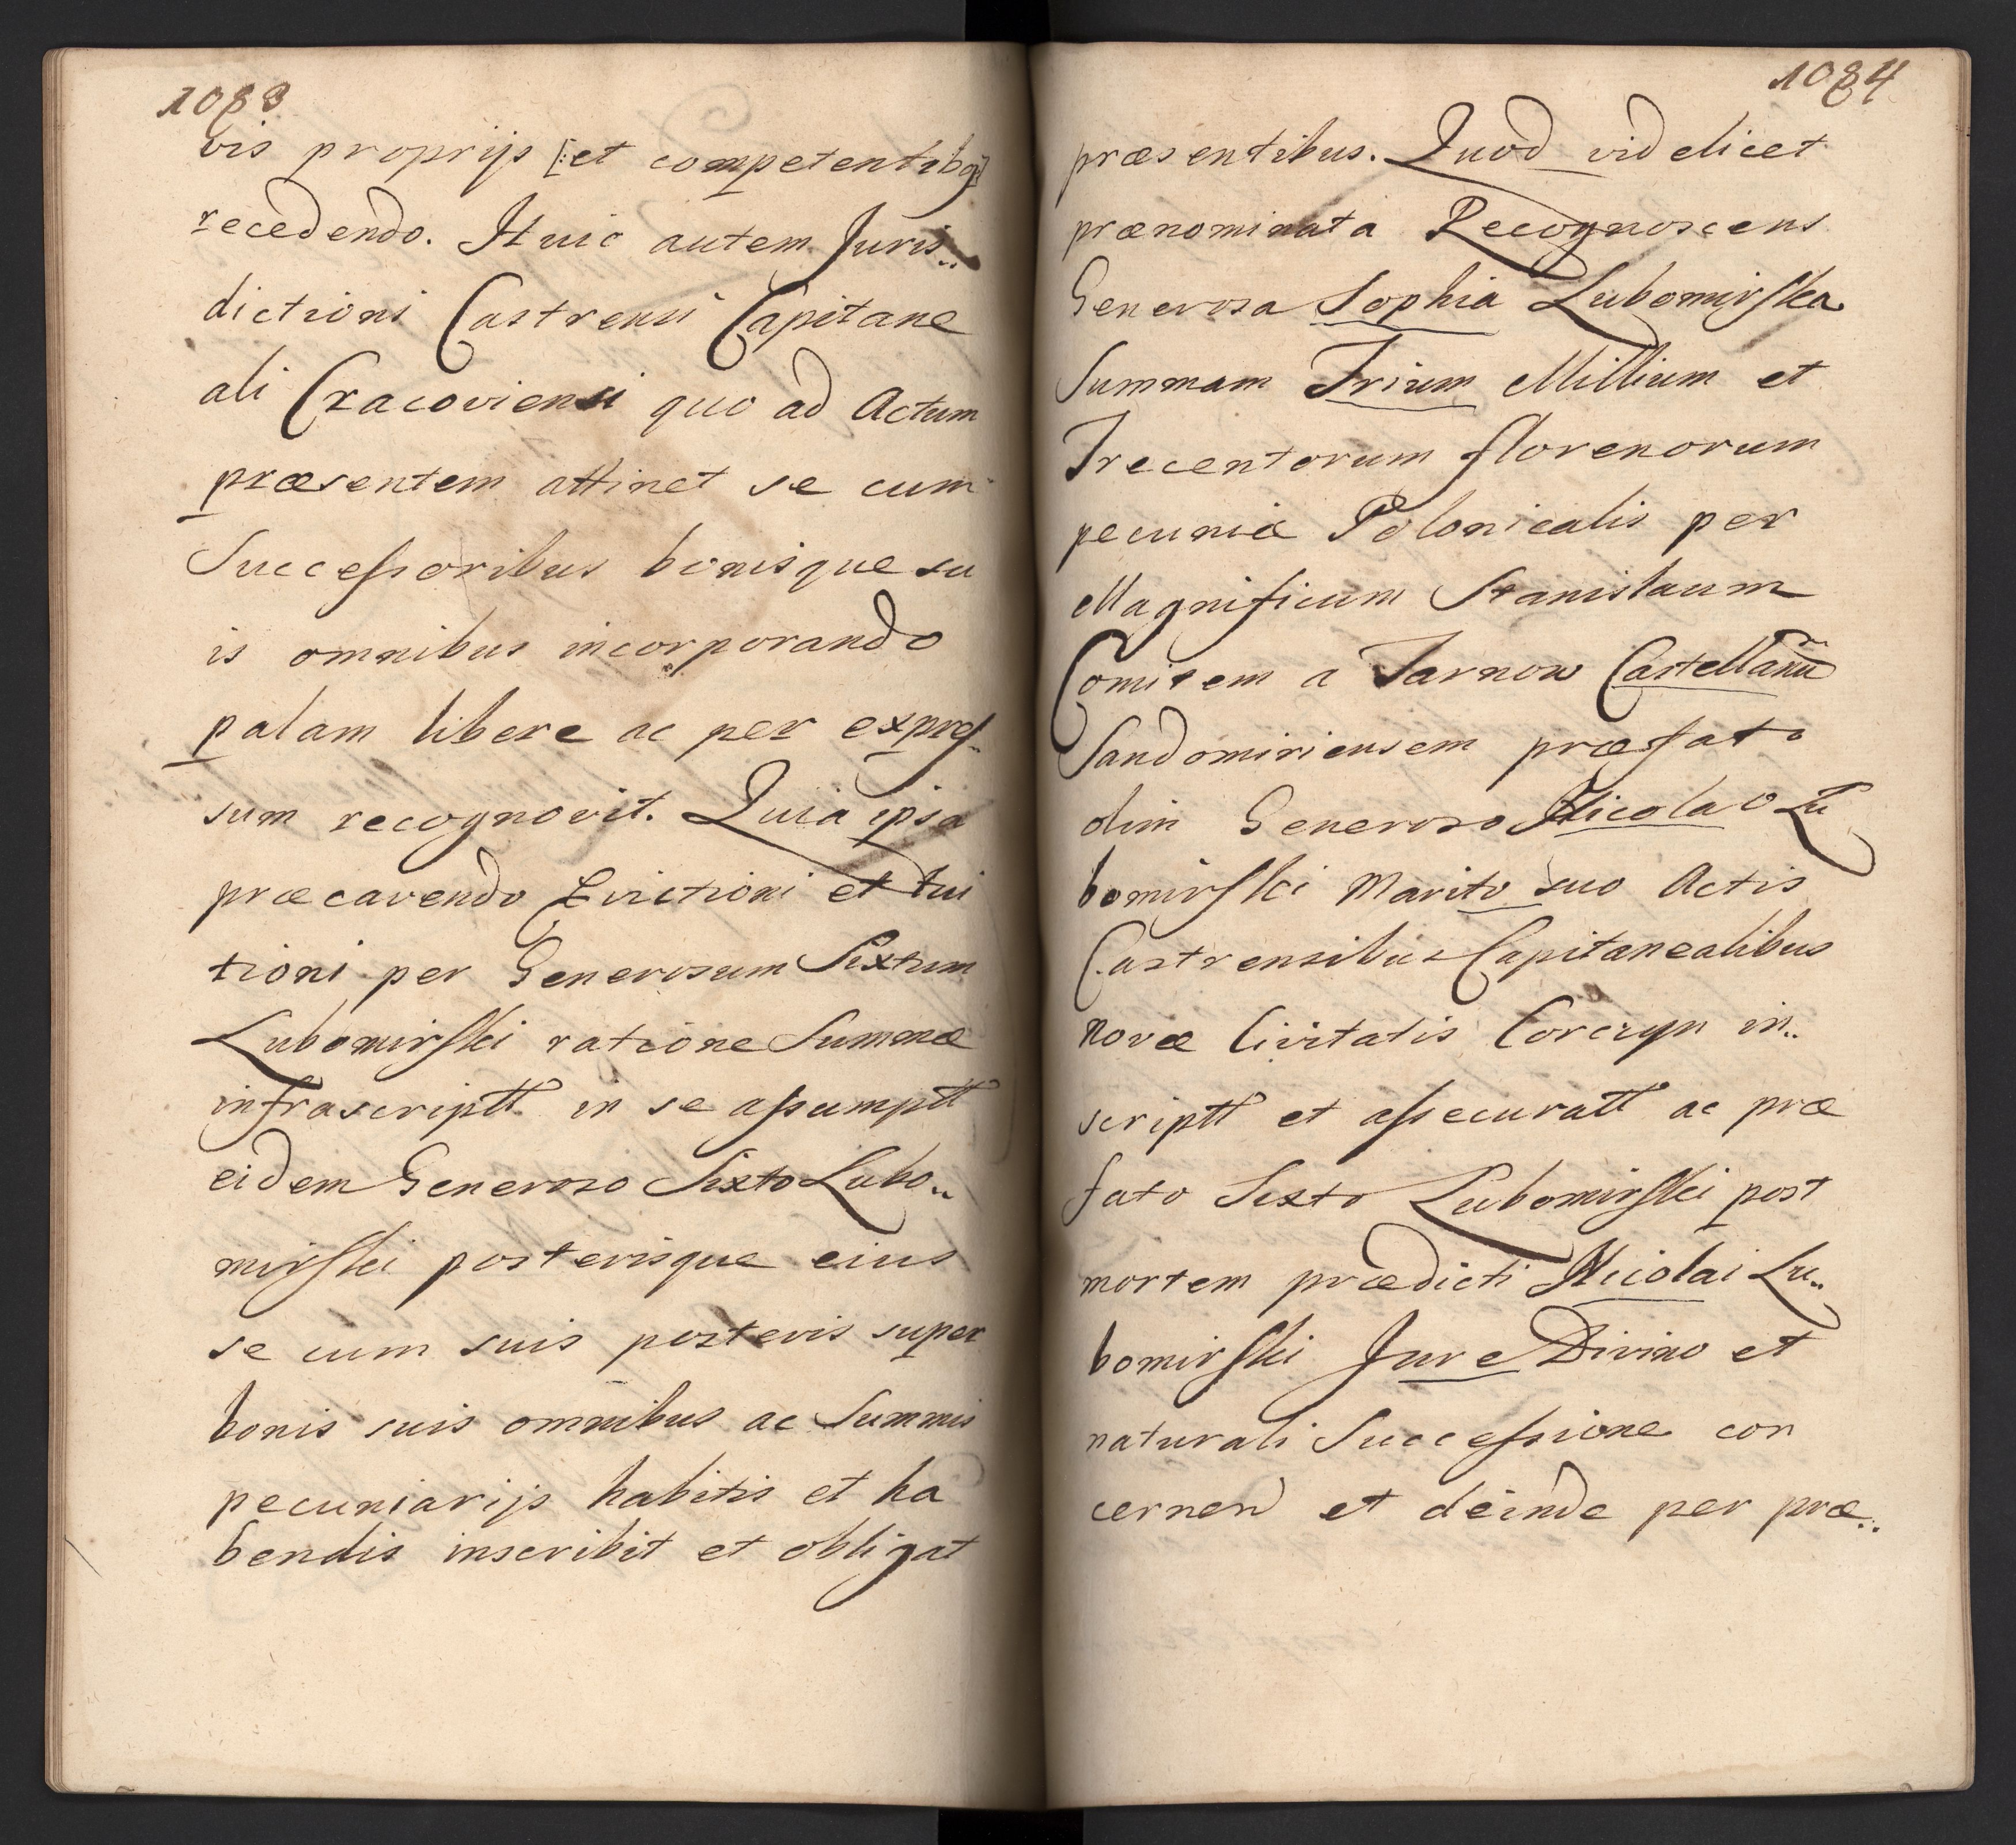 1083
vis proprijs [: et competentibq :]
recedendo. Huic autem Juris..
dictioni Castrensi Capitane
ali Cracoviensi quo ad Actum
præsentem attinet se cum
Successoribus bonisque su
is omnibus incorporando
palam libere ac per expres..
sum recognovit. Quia ipsa
præcavendo Evictioni et tui
tioni per Generosum Sixtum
Lubomirski ratione Summæ
infrascriptt in se assumptt
eidem Generoso Sixto Lubo..
mirski posterisque eius
se cum suis posteris super
bonis suis omnibus ac Summis
pecuniarijs habitis et ha
bendis inscribit et obligat
1084
præsentibus. Quod videlicet
prænominata Recognoscens
Generosa Sophia Lubomirska
Summam Trium Millium et
Trecentorum florenorum
pecuniæ Polonicalis per
Magnificum Stanislaum
Comitem a Tarnow Castellanū
Sandomiriensem præfato
olim Generoso Nicolao Lu
bomirski Marito suo Actis
Castrensibus Capitanealibus
Novæ Civitatis Corczyn in..
scriptt et assecuratt ac præ
fato Sixto Lubomirski post
mortem prædicti Nicolai Lu..
bomirski Jure Divino et
naturali Successione con
cernen et deinde per præ..